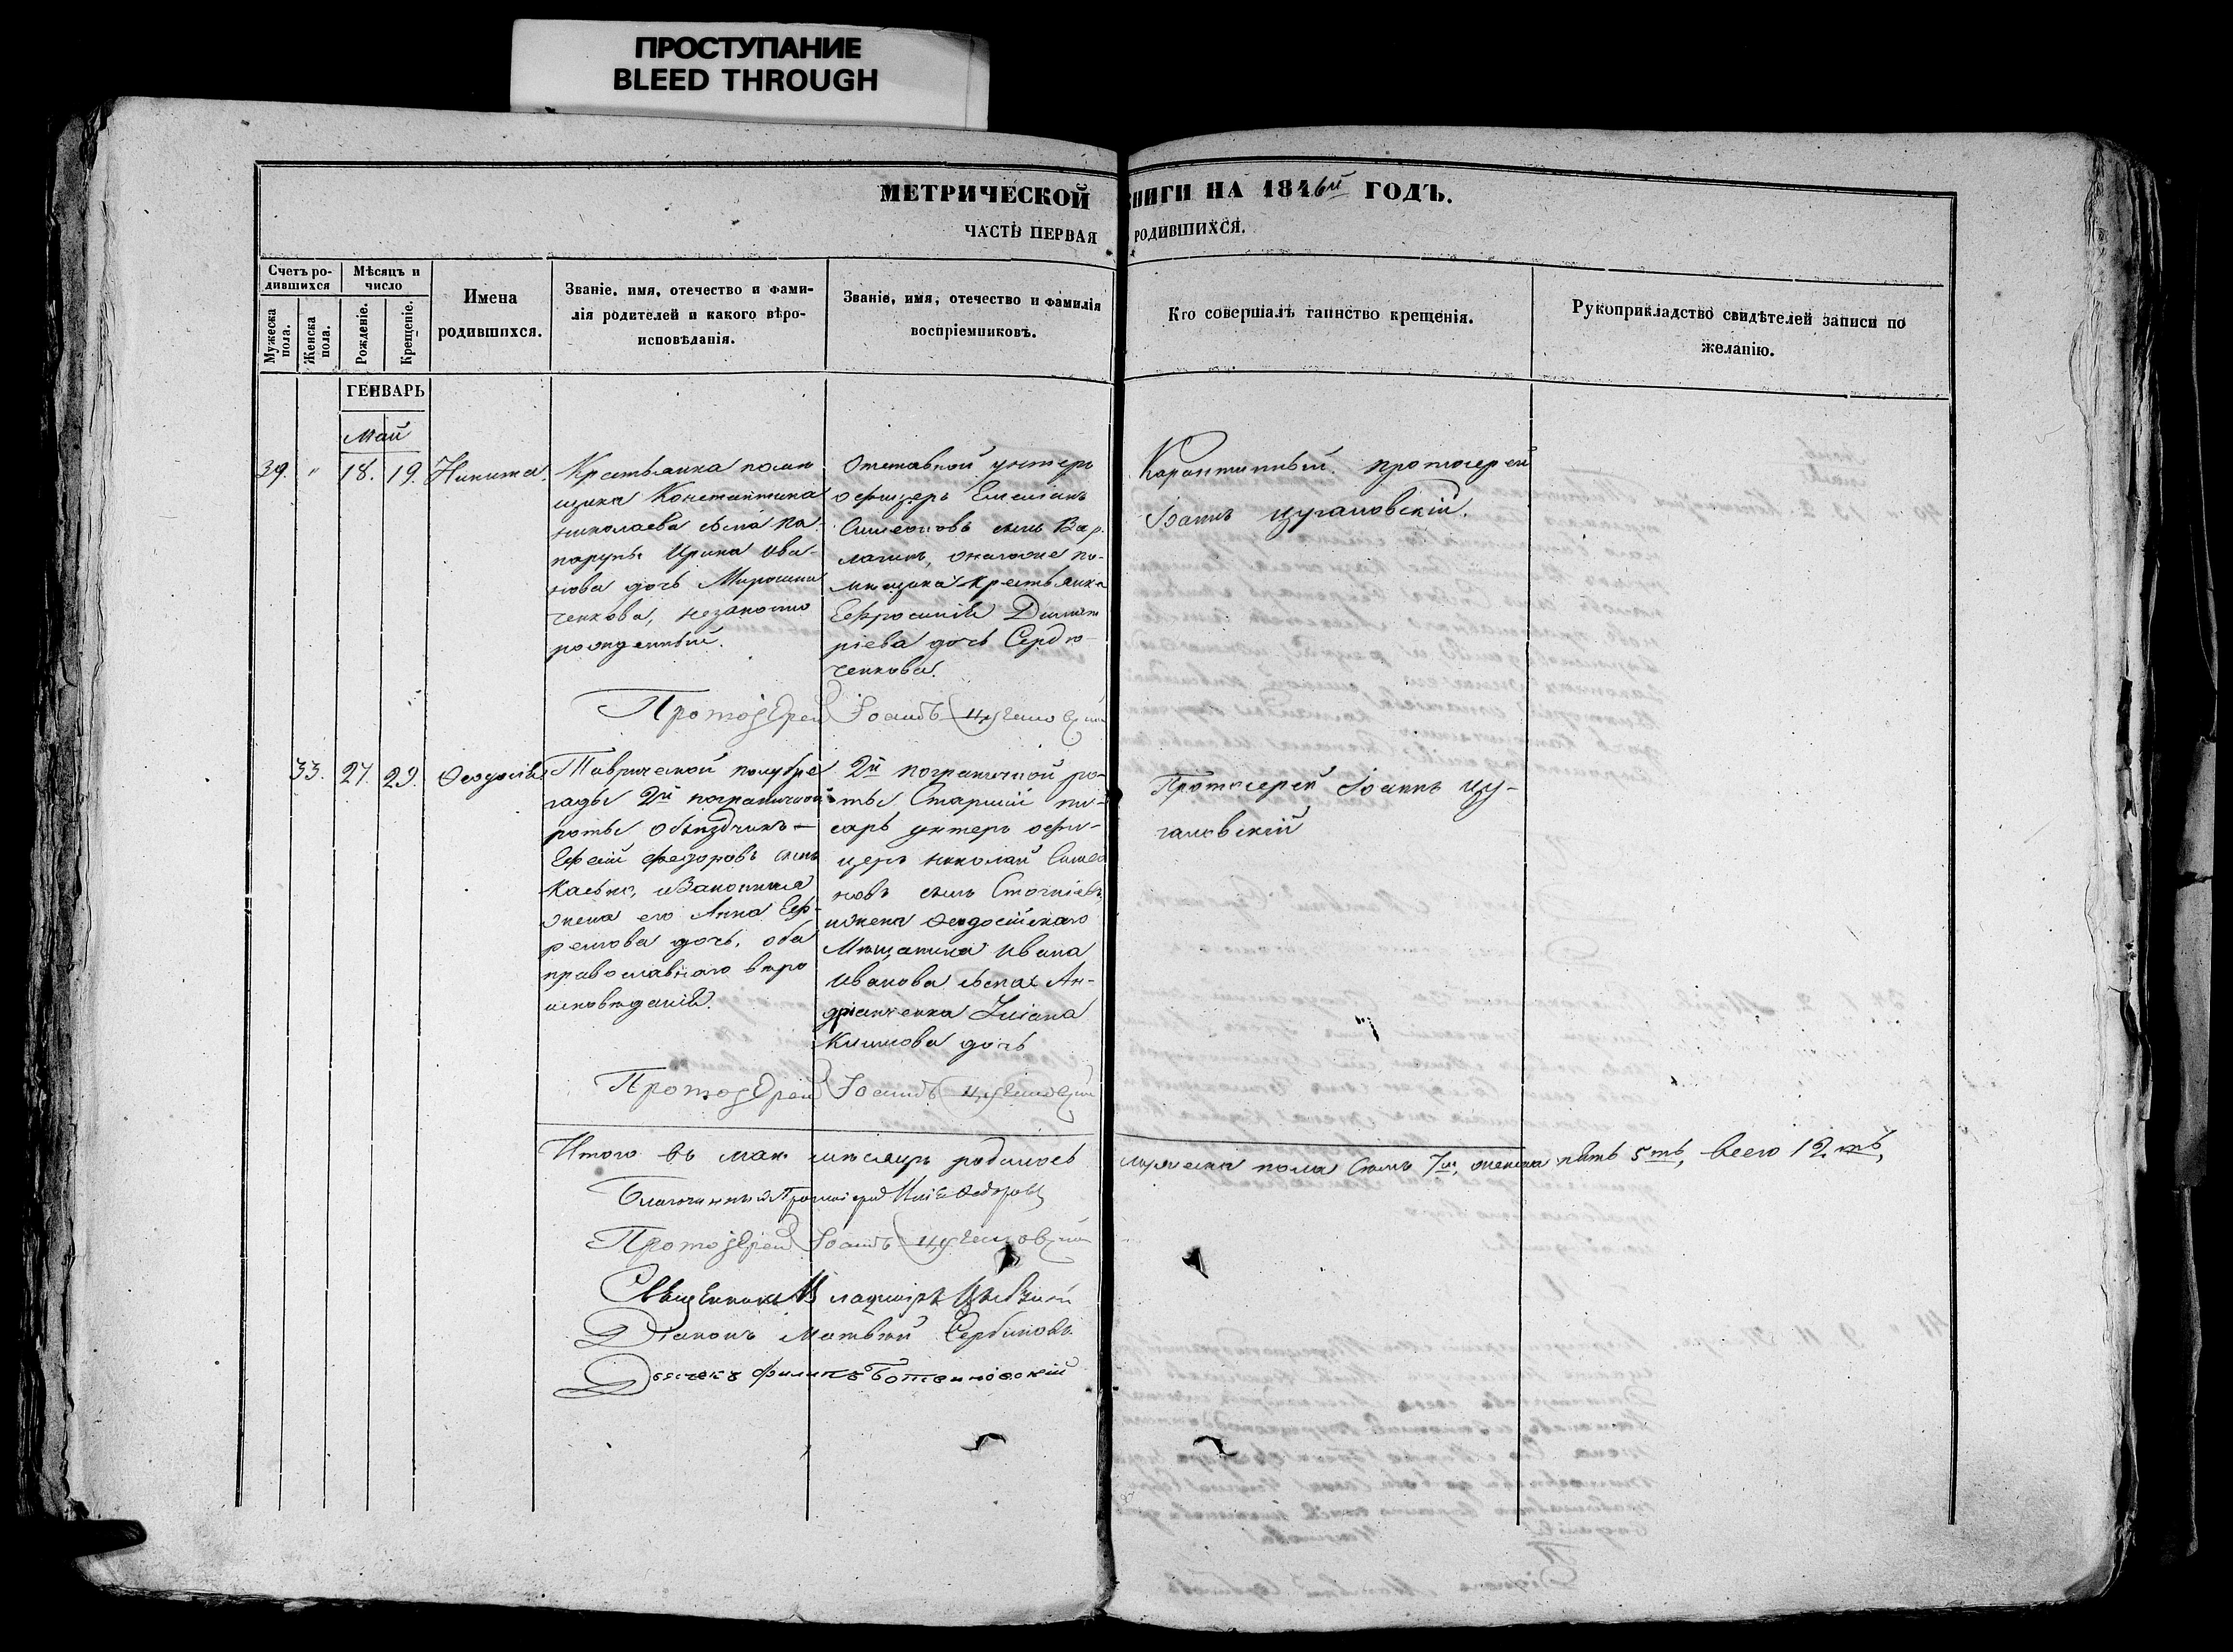 ПРОСТУПАНИЕ
BLEED THROUGH
МЕТРИЧЕСКОЙ КНИГИ НА 1846й ГОДЪ.
ЧАСТЬ ПЕРВАЯ РОДИВШИХСЯ.
Счетъ ро-
дившихся
Мужеска
пола.
Женска
пола.
Мѣсяцъ и
число
Рожденіе.
Крещеніе.
Имена
родившихся.
Званіе, имя, отечество и фами-
лія родителей и какого вѣро-
исповѣданія.
Званіе, имя, отечество и фамилія
воспріемниковъ.
Кто совершалъ таинство крещенія.
Рукоприкладство свидѣтелей записи по
желанію.
ГЕНВАРЬ
Май
39. " 18. 19. Никита.
Крестьянка помѣ
щика Константина
Николаева сына
Ирина Ива-
нова дочь Мирошни
ченкова, незаконно
рожденный.
Отставной унтеръ
офицеръ Емеліанъ
Симеоновъ сынъ Вар
помѣщика крестьянка
Евфросинія Димит
ріева дочь Сердю-
ченкова.
Карантинный протоіерей
Іоаннъ Цугановскій.
Протоіерей Іоаннъ
33. 27. 29. Ѳеодосія
Таврической полубри
гады 2й пограничной
роты Объѣздчикъ
Ефсій Федоровъ сынъ
законная
жена его Анна Еф-
ремова дочь, оба
православнаго вѣро
исповѣданія.
2й пограничной ро-
ты Старшій пи-
сарь унтеръ офи-
церъ Николай Симео
новъ сынъ
и жена Ѳеодосійскаго
Мѣщанина Ивана
Иванова сына Ан-
дріанченка
Климова дочь
Протоіерей Іоаннъ Цу-
гановскій
Протоіерей Іоаннъ
Итого въ маѣ мѣсяцѣ родилось мужеска пола семь 7мь, женска пять 5ть, всего 12ть,
Благочинный Протоіерей
Протоіерей Іоаннъ
Священникъ Владиміръ
Діаконъ Матвѣй Сербиновъ
Дьячекъ Филипъ Ботвиновскій